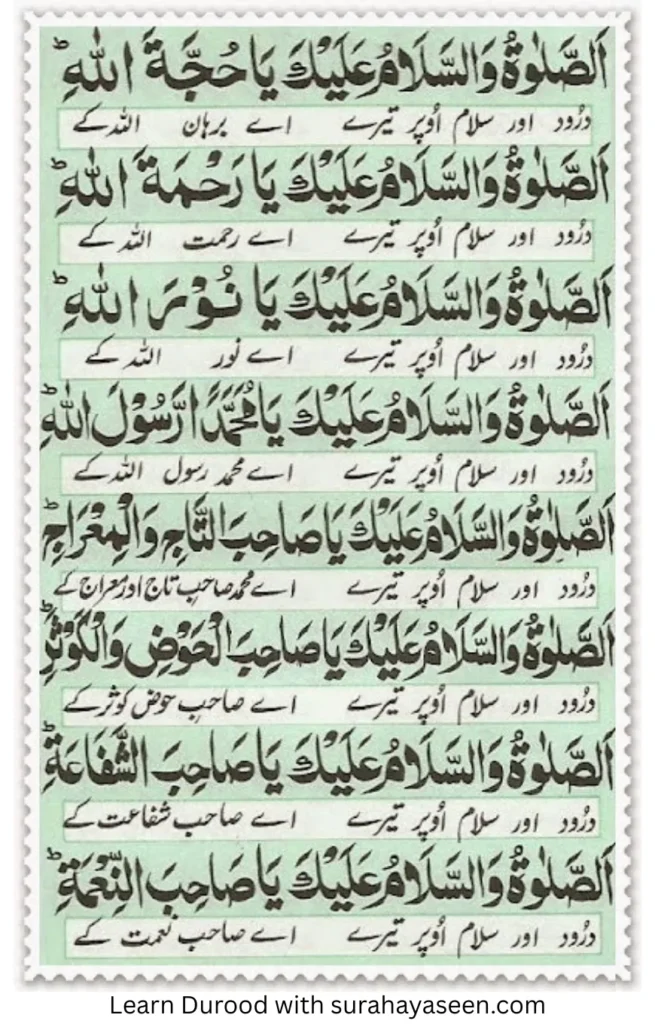 اَلصَّلٰوةُ وَالسَّلَامُ عَلَيْكَ يَا حُجَّةَ اللهِ ؕ
درُود اور سلام اُوپر تیرے اے برہان اللہ کے
اَلصَّلٰوةُ وَالسَّلَامُ عَلَيْكَ يَا رَحْمَةَ اللهِ ؕ
درُود اور سلام اُوپر تیرے اے رحمت اللہ کے
اَلصَّلٰوةُ وَالسَّلَامُ عَلَيْكَ يَا نُوْرَ اللهِ ؕ
درُود اور سلام اُوپر تیرے اے نور اللہ کے
اَلصَّلٰوةُ وَالسَّلَامُ عَلَيْكَ يَا مُحَمَّدًا رَّسُوْلَ اللهِ ؕ
درُود اور سلام اُوپر تیرے اے محمد رسول اللہ کے
اَلصَّلٰوةُ وَالسَّلَامُ عَلَيْكَ يَا صَاحِبَ التَّاجِ وَالْمِعْرَاجِ ؕ
درُود اور سلام اُوپر تیرے اے محمد صاحبِ تاج اور معراج کے
اَلصَّلٰوةُ وَالسَّلَامُ عَلَيْكَ يَا صَاحِبَ الْحَوْضِ وَالْكَوْثَرِ ؕ
درُود اور سلام اُوپر تیرے اے صاحبِ حوض کوثر کے
اَلصَّلٰوةُ وَالسَّلَامُ عَلَيْكَ يَا صَاحِبَ الشَّفَاعَةِ ؕ
درُود اور سلام اُوپر تیرے اے صاحب شفاعت کے
اَلصَّلٰوةُ وَالسَّلَامُ عَلَيْكَ يَا صَاحِبَ النِّعْمَةِ ؕ
درُود اور سلام اُوپر تیرے اے صاحب نعمت کے
Learn Durood with surahayaseen.com